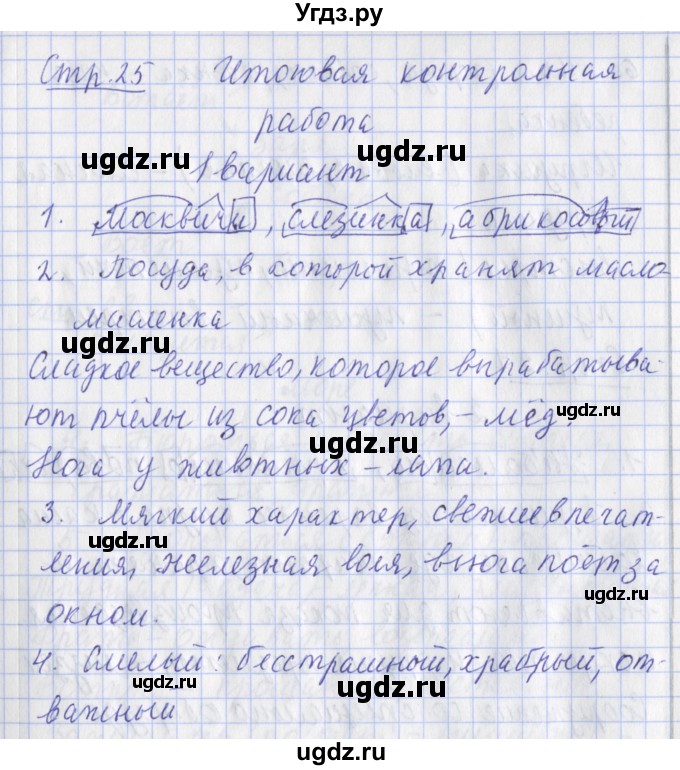 Угдз.ру
Стр.25 Итоговая контрольная
работа
ugdz.ru ugdz.ru
1 вариант
1. москвичи, слезинка, абрикосовый
2. Посуда, в которой хранят масло
ugdz.ru ugdz.ru
масленка
ugdz.ru
Сладкое вещество, которое вырабатыва-
ют пчёлы из сока цветов, - мёд.
ugdz.ru
ugdz.ru
Нога у животных - лапа.
3. Мягкий характер, свежие впечат-
ugdz.ru
ления, железная воля, вьюга поёт за
ugdz.ru
окном.
ugdz.ru
4. Смелый: бесстрашный, храбрый, от-
ugdz.ru ugdz.ru
важный
ugdz.ru
ugdz.ru